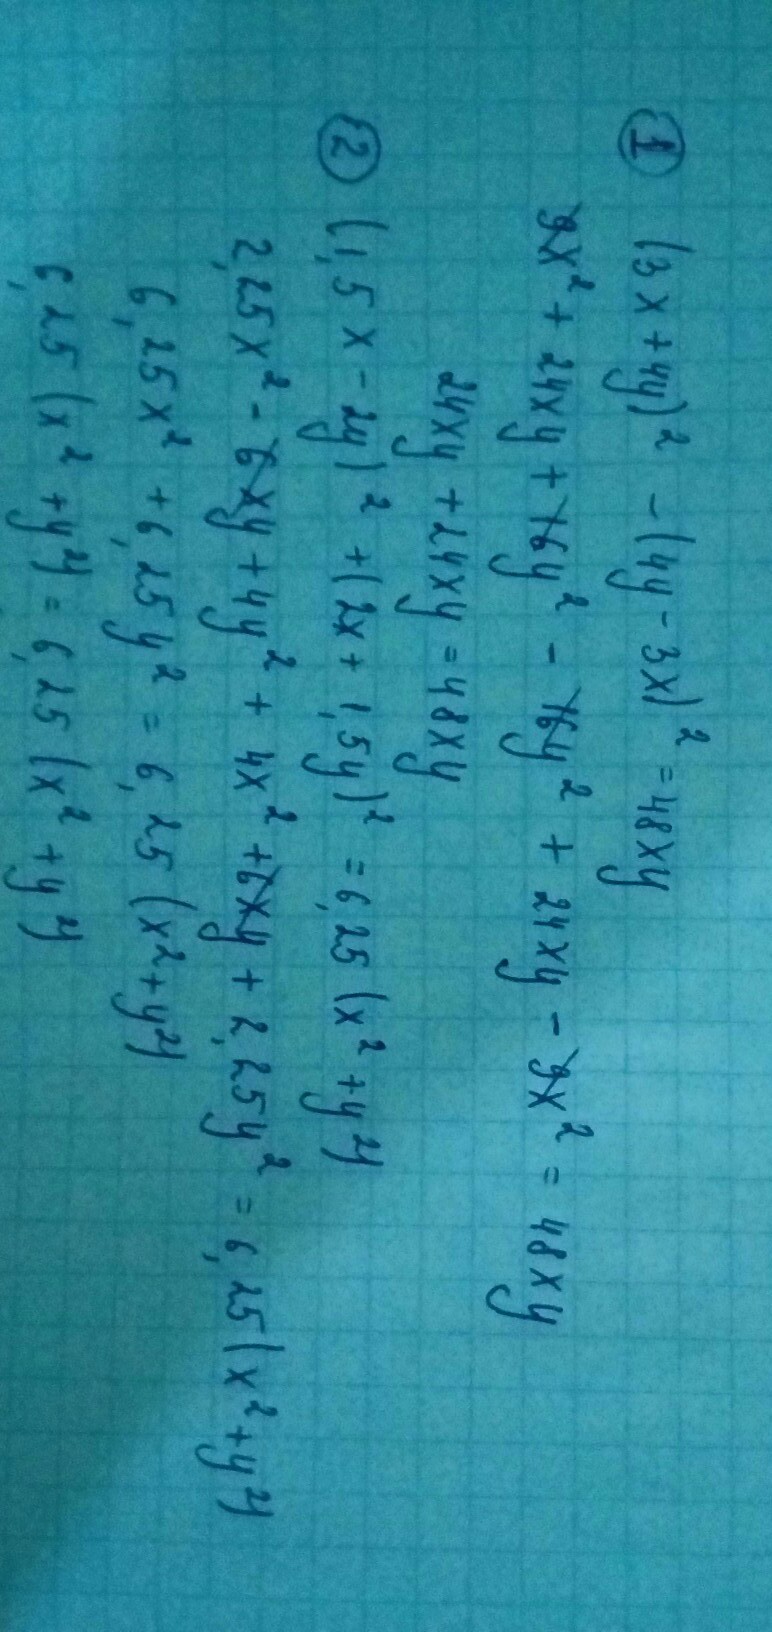 ① (3x+4y)² - (4y-3x)² = 48xy
9x² + 24xy + 16y² - 16y² + 24xy - 9x² = 48xy
24xy + 24xy = 48xy
② (1,5x - 2y)² + (2x + 1,5y)² = 6,25 (x² + y²)
2,25x² - 6xy + 4y² + 4x² + 6xy + 2,25y² = 6,25 (x² + y²)
6,25x² + 6,25y² = 6,25 (x² + y²)
6,25 (x² + y²) = 6,25 (x² + y²)